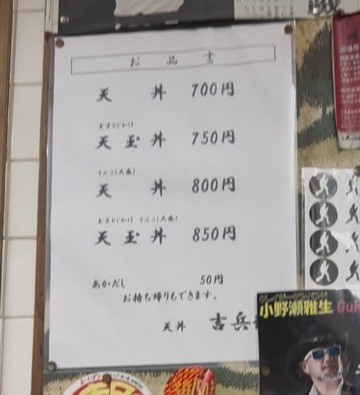 お品書
天 丼 700円
たまとじかけ
天玉丼 750円
てんこ(大盛)
天 丼 800円
たまとじかけ てんこ(大盛)
天玉丼 850円
あかだし 50円
お持ち帰りもできます。
天丼 吉兵
小野瀬雅生 Gui